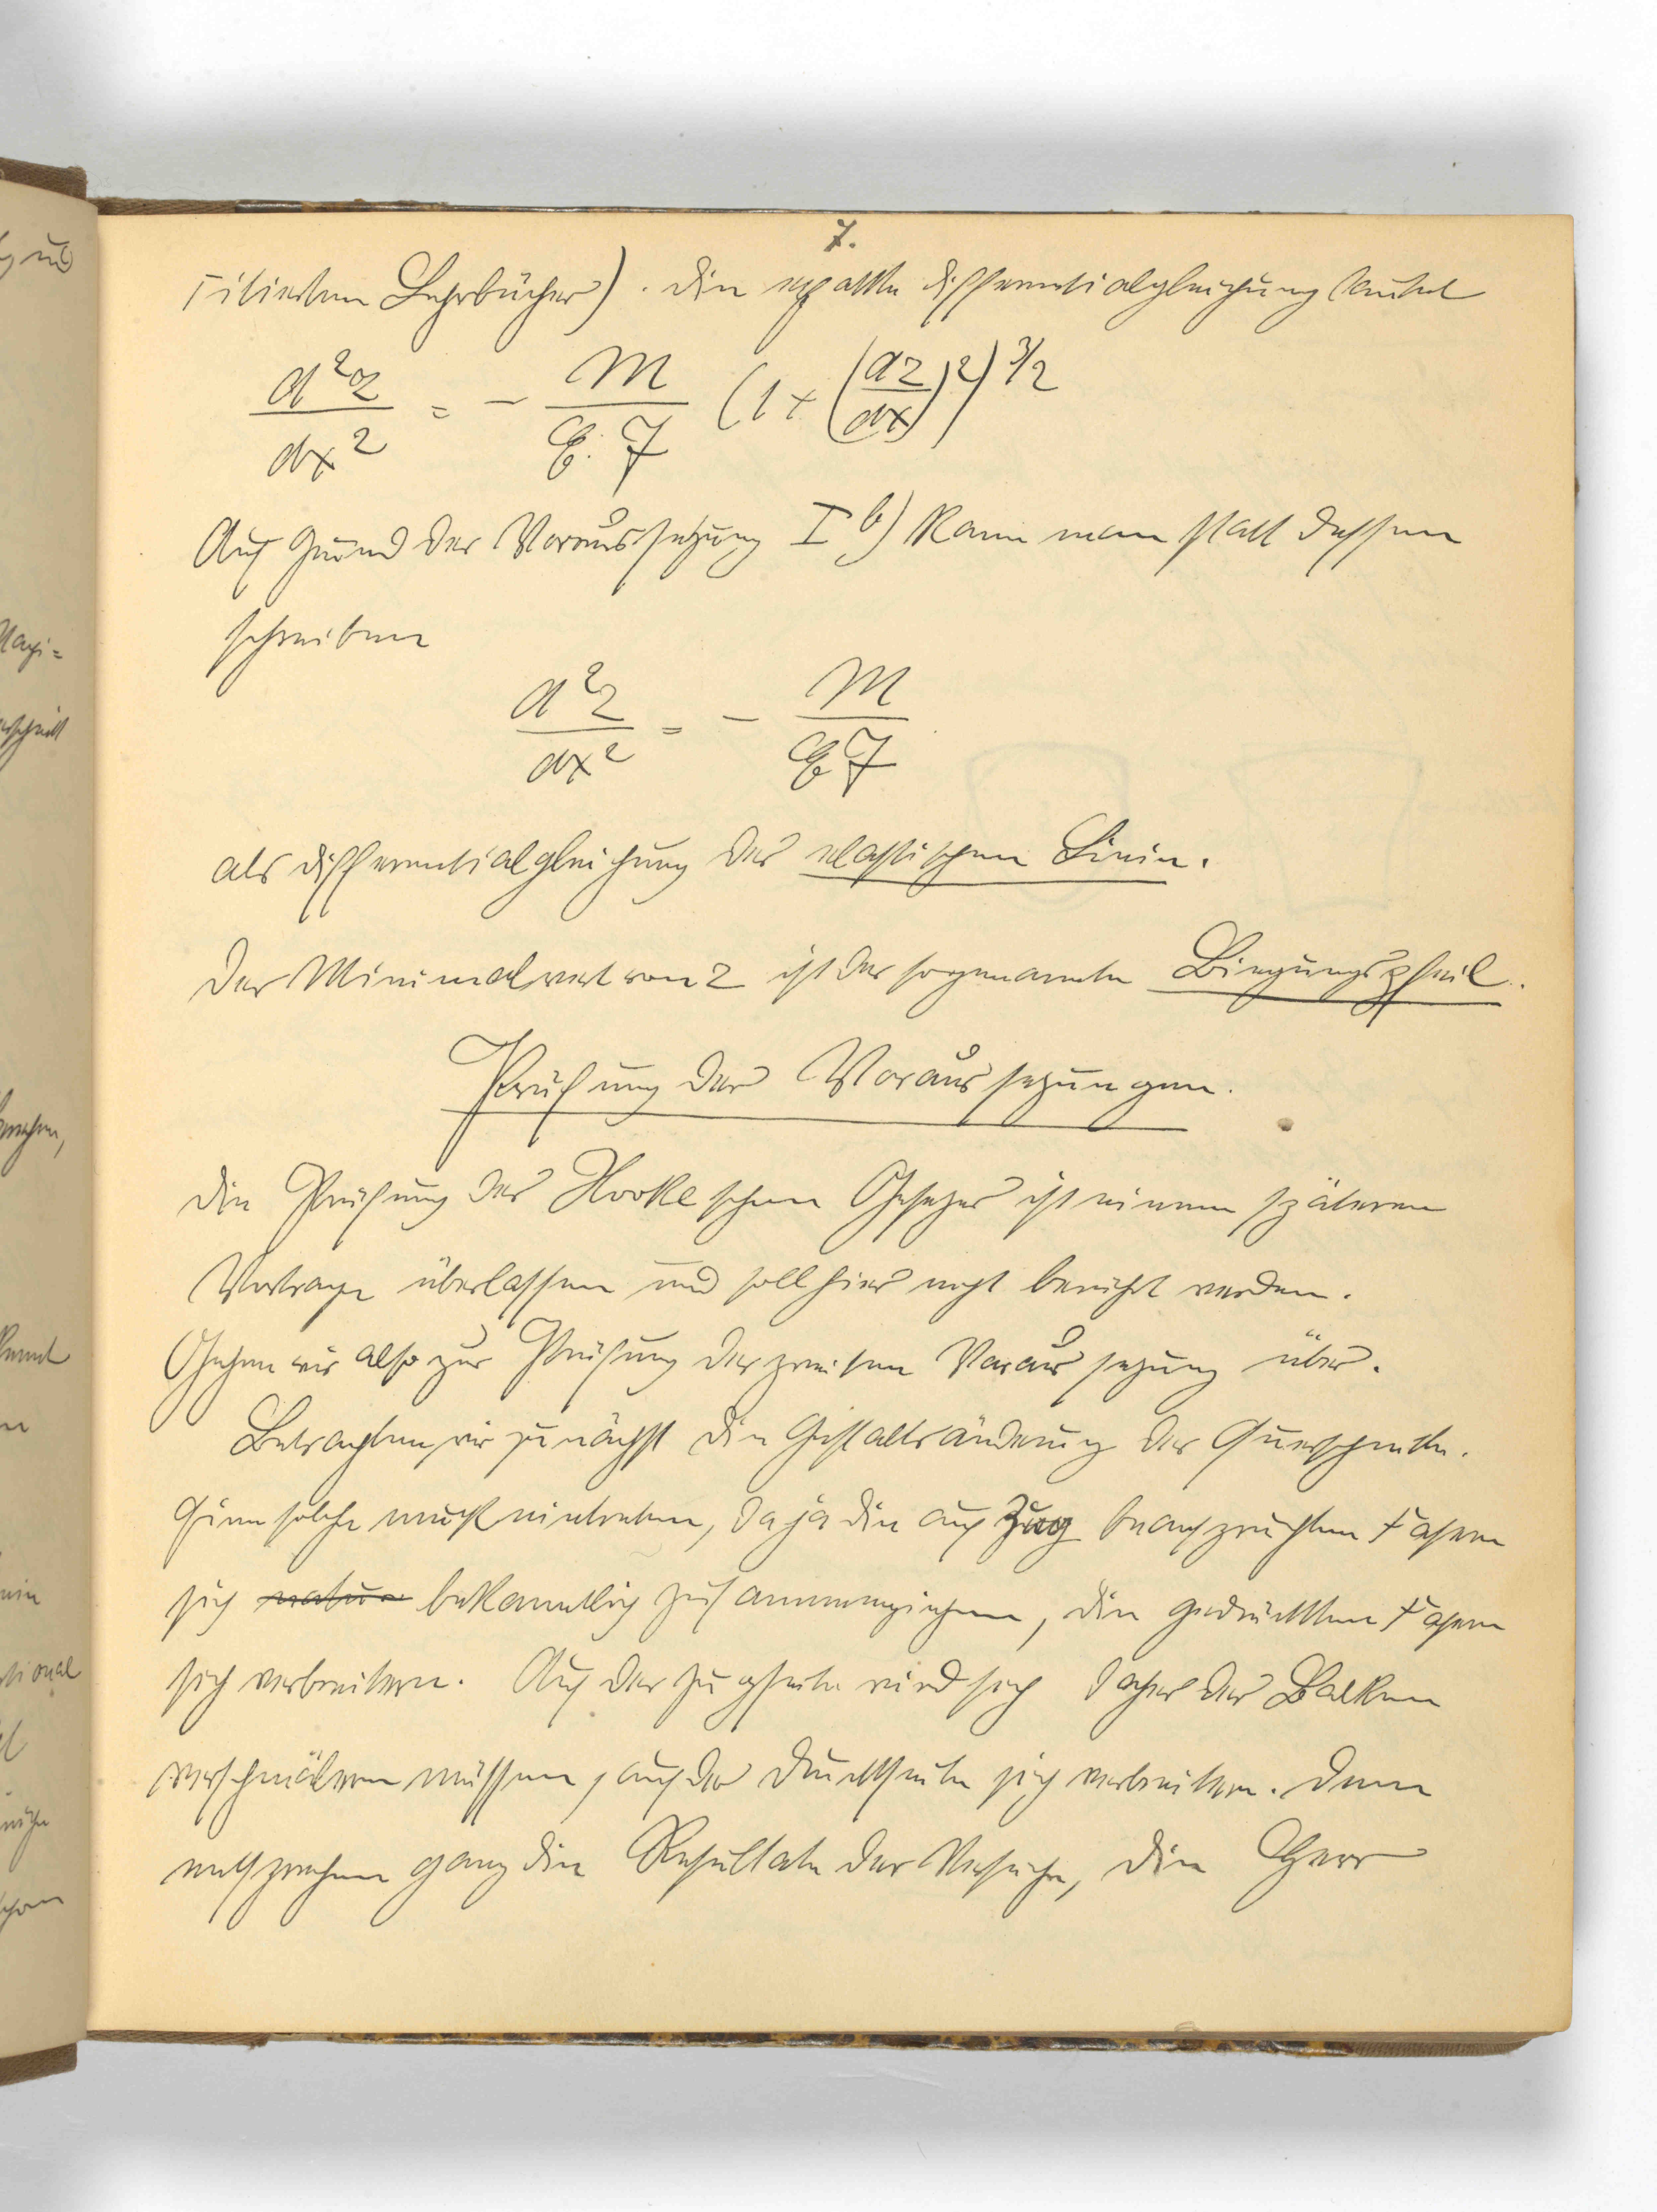 7.
zitierten Lehrbücher). Die exakte Differentialgleichung lautet
d²z/dx² = - M/(E·J) (1 + (dz/dx)²)^3/2
Auf Grund der Voraussetzung I b) kann man statt dessen
schreiben
d²z/dx² = - M/(EJ)
als Differentialgleichung der elastischen Linie.
Der Minimalwert von z ist der sogenannte Biegungspfeil.
Prüfung der Voraussetzungen.
Die Prüfung des Hooke'schen Gesetzes ist einem späteren
Vortrage überlassen und soll hier nicht berührt werden.
Gehen wir also zur Prüfung der zweiten Voraussetzung über.
Betrachten wir zunächst die Gestaltsänderung der Querschnitte.
Eine solche muß eintreten, da ja die auf Zug beanspruchten Fasern
sich natur bekanntlich zusammenziehen, die gedrückten Fasern
sich verbreitern. Auf der Zugseite wird sich daher der Balken
verschmälern müssen, auf der Druckseite sich verbreitern. Dem
entsprechen ganz die Resultate der Versuche, die Herr